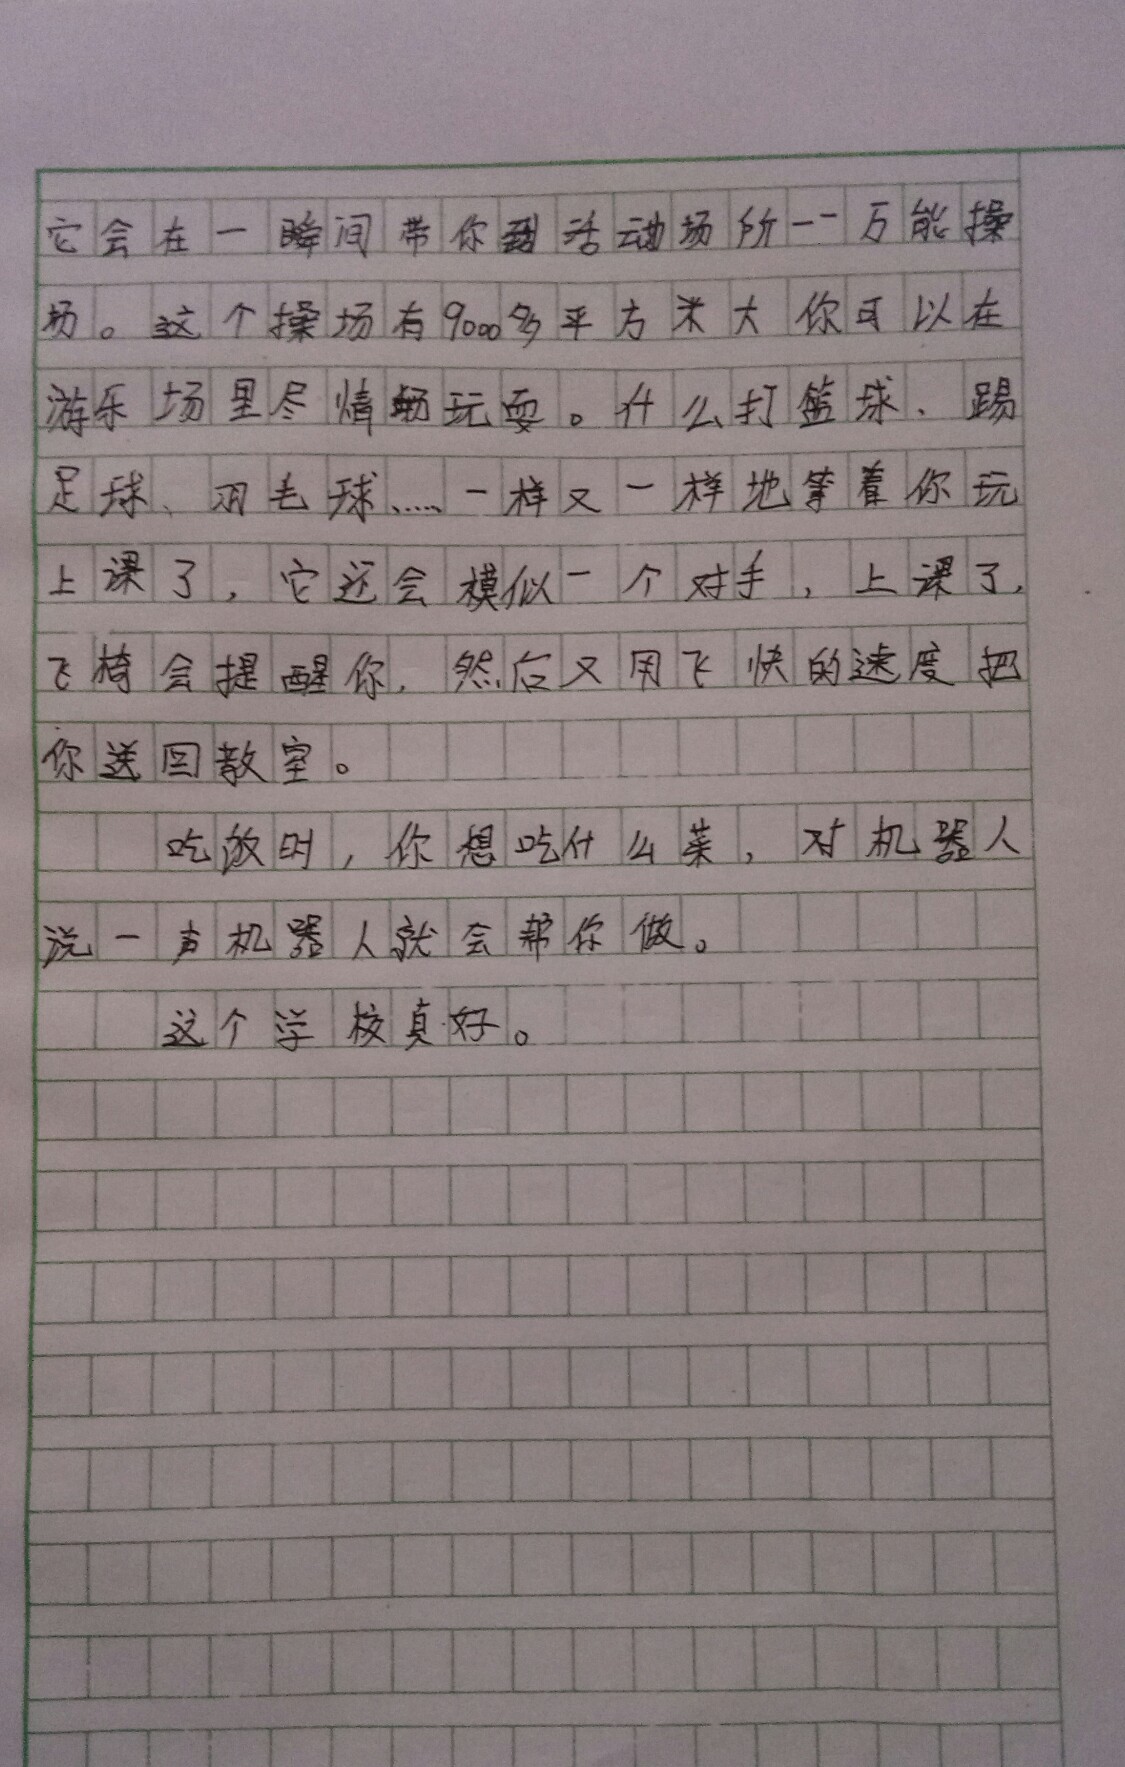 它会在一瞬间带你到活动场所一一万能操
场。这个操场有9000多平方米大你可以在
游乐场里尽情畅玩耍。什么打篮球、踢
足球、羽毛球……一样又一样地等着你玩
上课了，它还会模似一个对手，上课了，
飞椅会提醒你，然后又用飞快的速度把
你送回教室。
吃放时，你想吃什么菜，对机器人
说一声机器人就会帮你做。
这个学校真好。